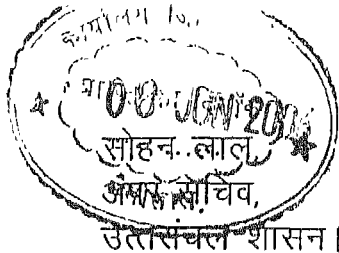 कार्यालय
JUN 200
सोहन लाल,
अपर सचिव,
उत्तरांचल शासन।